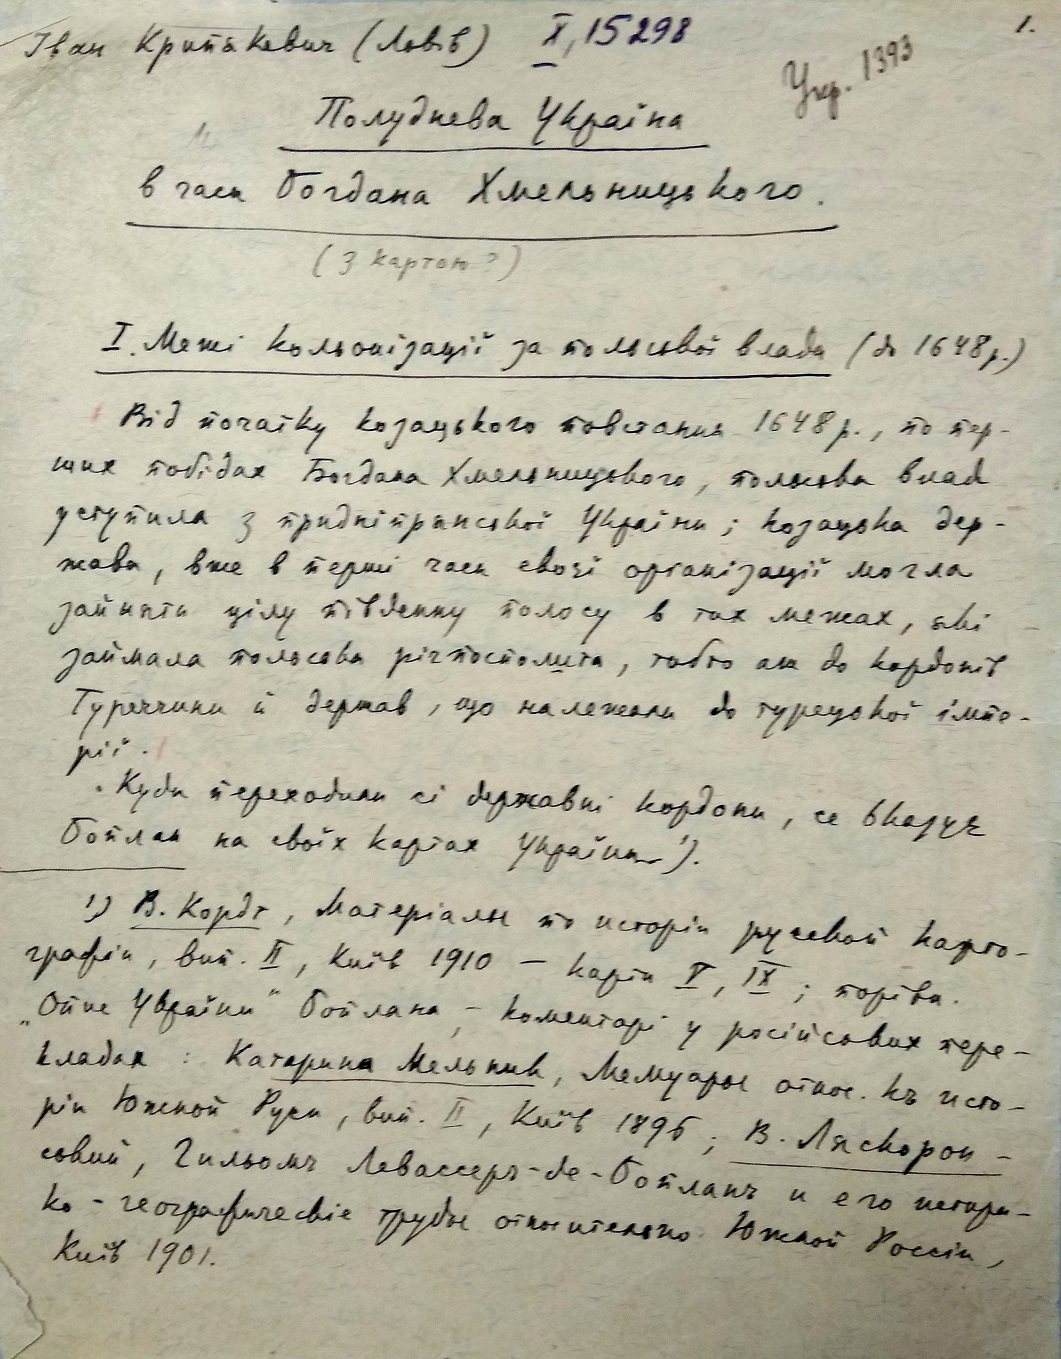 Іван Крипякевич (Львів) X, 15298
1.
Укр. 1393
Полуднева Україна
в часи Богдана Хмельницького.
(З картою?)
I. Межі кольонізації за польської влади (до 1648 р.)
Від початку козацького повстання 1648 р., по пер-
ших побідах Богдана Хмельницького, польська влада
уступила з придніпрянської України; козацька дер-
жава, вже в перші часи своєї організації могла
зайняти цілу південну полосу в тих межах, які
займала польська річпосполита, тобто аж до кордонів
Туреччини й держав, що належали до турецької імпе-
рії.
Куди переходили сі державні кордони, се вказує
Боплан на своїх картах України ¹).
¹) В. Кордт, Матеріалы по исторіи русской карто-
графіи, вип. II, Київ 1910 — карти V, IX; порівн.
„Опис України" Боплана, – коментарі у російських пере-
кладах: Катерина Мельник, Мемуары относ. къ исто-
ріи Южной Руси, вип. II, Київ 1896; В. Ляскорон-
ський, Гильомъ Левассеръ-де-Бопланъ и его истори-
ко-географическіе труды относительно Южной Россіи,
Київ 1901.